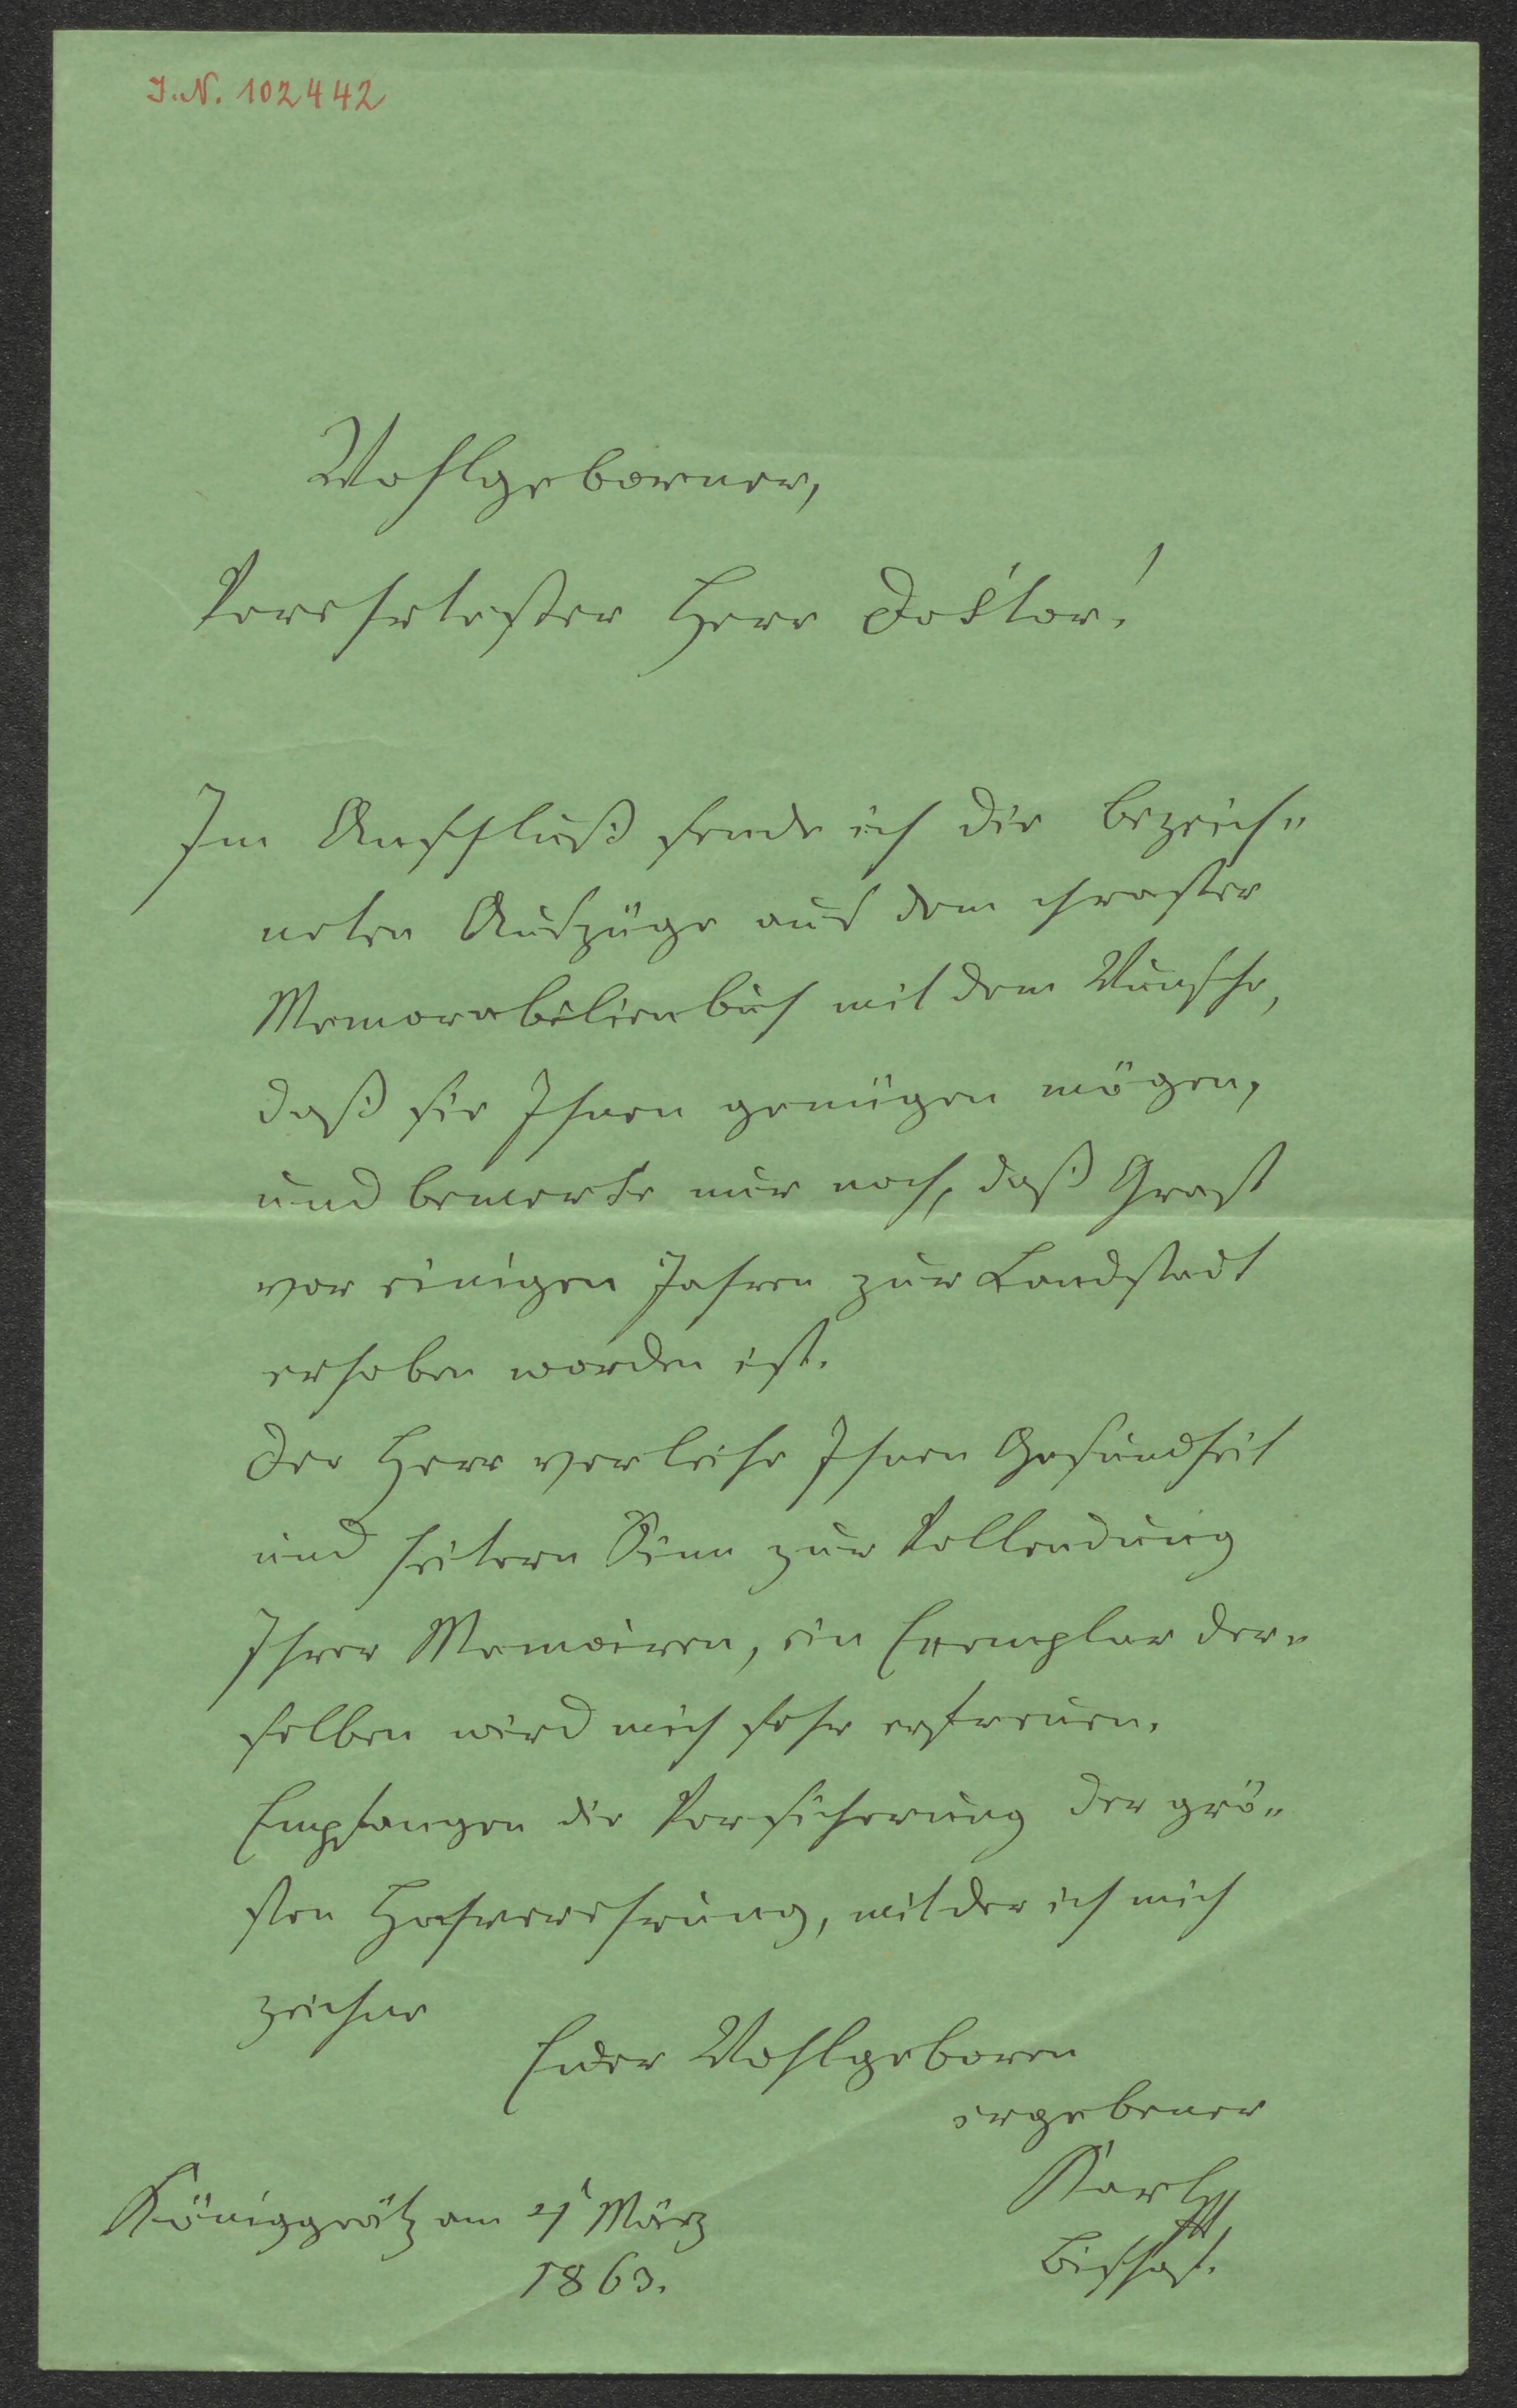 I.N. 102442
Wohlgeborner,
Verehrtester Herr Doktor!
Im Anschluß sende ich die bezeich„
neten Auszüge aus dem chraster
Memorabilienbuch mit dem Wunsche,
daß sie Ihnen genügen mögen,
und bemerke nur noch, daß Chrast
vor einigen Jahren zur Landstadt
erhoben worden ist.
Der Herr verleihe Ihnen Gesundheit
und heitern Sinn zur Vollendung
Ihrer Memoiren, ein Exemplar der„
selben wird mich sehr erfreuen.
Empfangen die Versicherung der grö„
sten Hochverehrung, mit der ich mich
zeichne
Euer Wohlgeboren
ergebener
Karl
Bischof.
Königgrätz am März
1863.